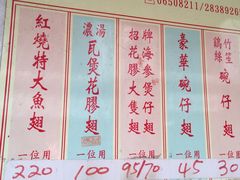 06508211/
竹笙
鷄絲
碗仔翅
豪華碗仔翅
招牌
海參煲仔翅
花膠大隻翅
濃湯
瓦煲花膠翅
一位用
紅燒特大魚翅
一位用
220 100 95/70 45 30